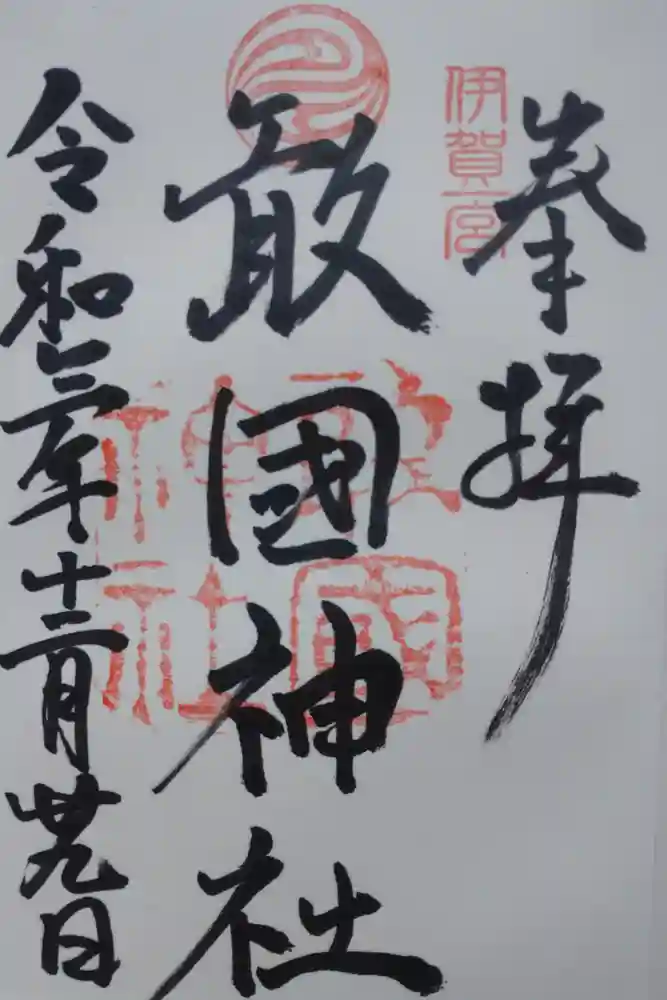 奉拝
伊賀一宮
敢國神社
敢國
神社
令和三年十二月廿九日